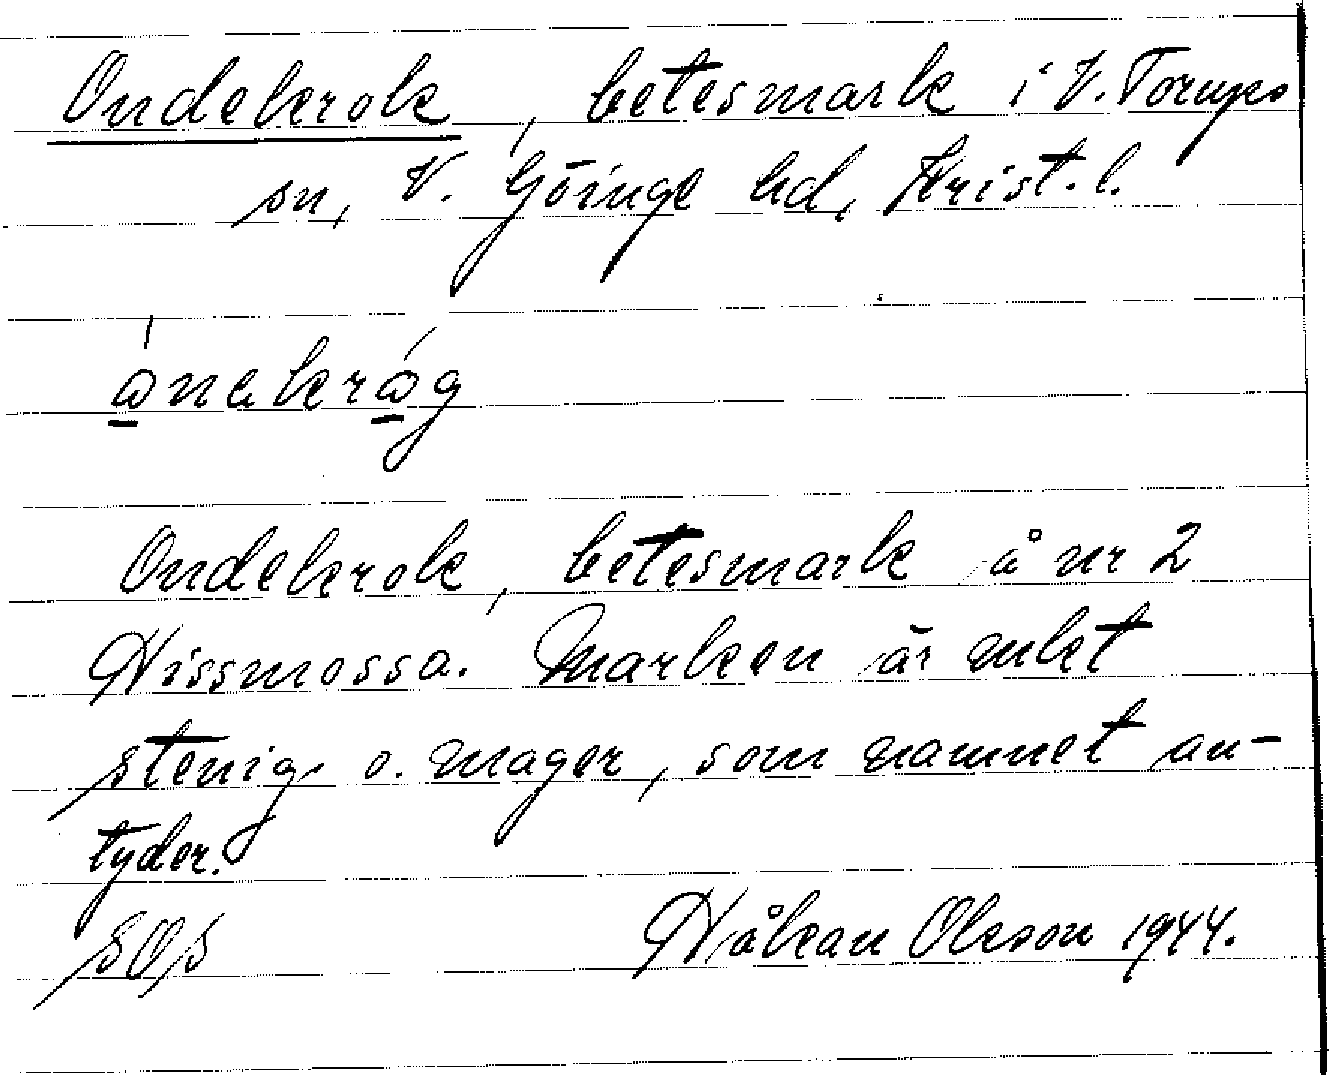 Ondekrok, betesmark i V. Torups
sn, V. Göinge hd, Krist. l.
ánekróg
Ondekrok, betesmark å nr 2
Hissmossa. Marken är mket
stenig o. mager, som namnet an-
tyder.
Håkan Olsson 1944.